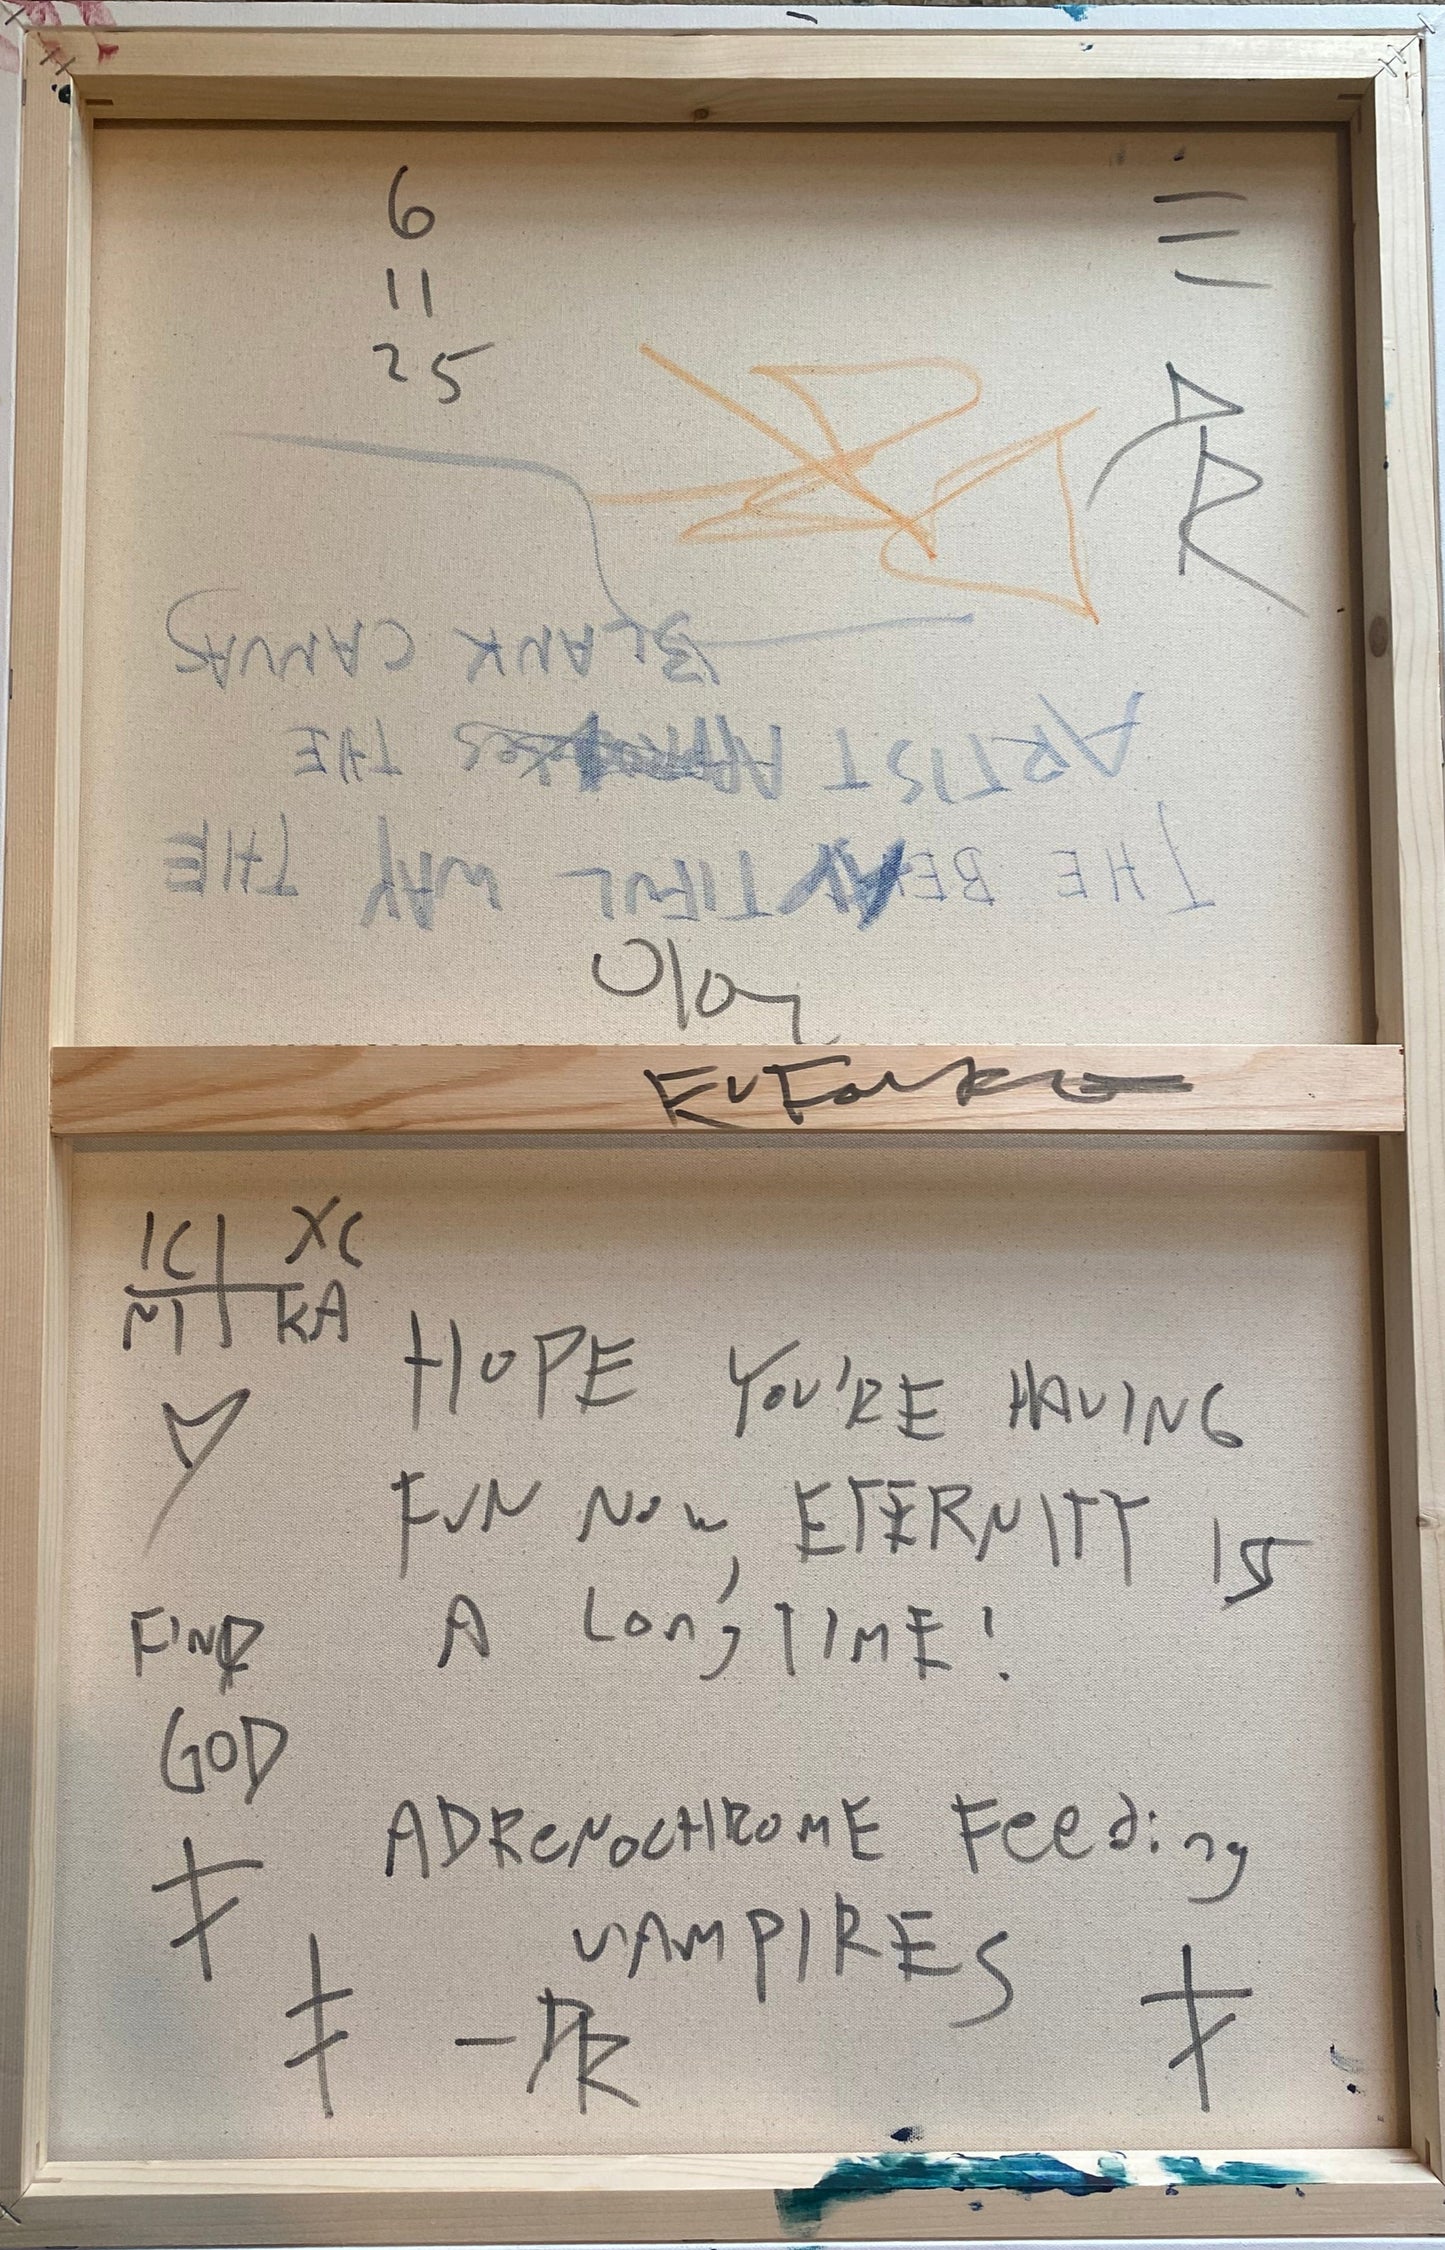 6
11
25
DR
THE BEAUTIFUL WAY THE
ARTIST THE
BLANK CANVAS
IC XC
NI KA
HOPE YOU'RE HAVING
FUN NOW, ETERNITY IS
A Long TIME!
FIND
GOD
ADReNOCHROME Feeding
VAMPIRES
-DR